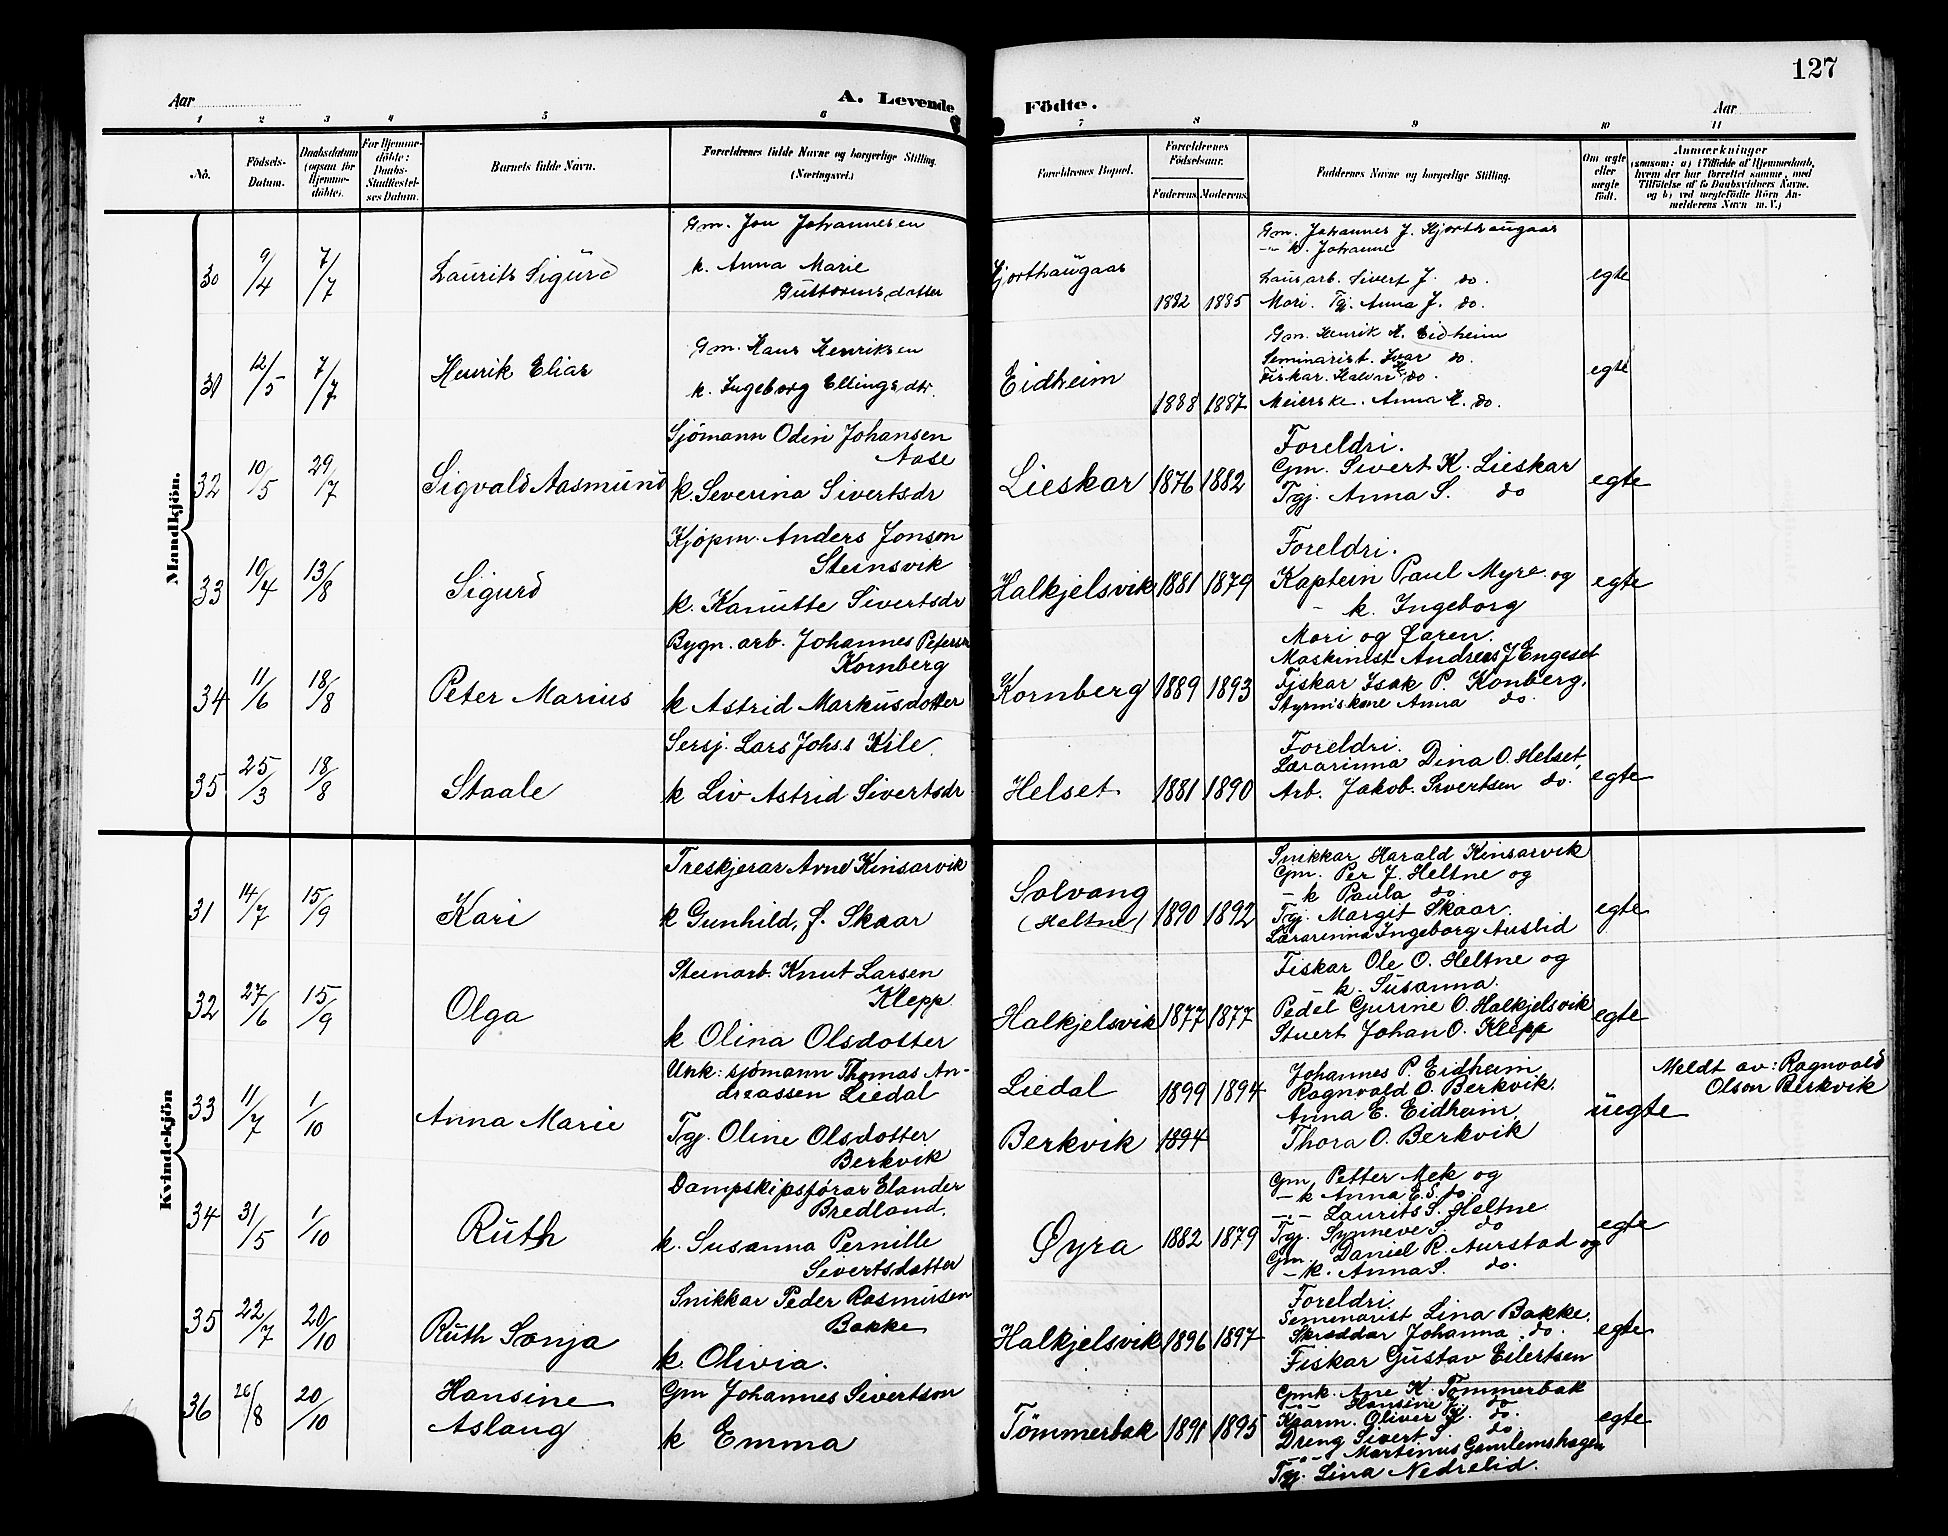 127
Aar
A. Levende Födte.
Aar
1 2 3 4 5 6 7 8 9 10 11
No.
Födsels-
Datum.
Daabsdatum
(ogsaa for
Hjemme-
döbte).
For Hjemme-
döbte:
Daabs-
Stadfæstel-
ses Datum.
Barnets fulde Navn.
Forældrenes fulde Navne og borgerlige Stilling.
(Næringsvei.)
Forældrenes Bopæl.
Forældrenes
Födselsaar.
Faderens. Moderens.
Faddernes Navne og borgerlige Stilling.
Om ægte
eller
uægte
födt.
Anmærkninger
(saasom: a) i Tilfælde af Hjemmedaab,
hvem der har forrettet samme, med
Tilföielse af to Daabsvidners Navne,
og b) ved uægtefödte Börn An-
melderens Navn m. V.)
Mandkjön.
30 9/4 7/7 Laurits Sigurd
Gm. Jon Johannesen
k. Anna Marie
Guttormsdotter
Hjorthaugaas 1882 1885
Gm. Johannes J. Hjorthaugaas
-"- k. Johanne
Lausarb. Sivert J. do.
Mori. Tgj. Anna J. do.
egte
31 12/5 7/7 Henrik Elias
Gm. Hans Henriksen
k. Ingeborg Ellingsdtr.
Eidheim 1888 1887
Gm. Henrik H. Eidheim
Seminarist. Ivar do.
Fiskar. Kalvn H. do.
Meierske. Anna H. do.
egte
32 10/5 29/7 Sigvald Aasmund
Sjömann Odin Johansen
Aase
k. Severina Sivertsdr
Lieskar 1876 1882
Foreldri.
Gm. Sivert K. Lieskar
Tgj. Anna S. do
egte
33 10/4 13/8 Sigurd
Kjöpm. Anders Jonson
Steinsvik
k. Kanutte Sivertsdr
Halkjelsvik 1881 1879
Foreldri.
Kaptein Paul Myre og
- k. Ingeborg
egte
34 11/6 18/8 Peter Marius
Bygn. arb. Johannes Petersn
Kornberg
k Astrid Markusdotter
Kornberg 1889 1893
Mori og faren.
Maskinist Andreas J Engeset
Fiskar Isak P. Konberg,
Styrmiskone Anna do.
35 25/3 18/8 Staale
Sersj. Lars Johs.s Kile.
k Liv Astrid Sivertsdr
Helset 1881 1890
Foreldri.
Lærarinna Dina O. Helset,
Arb. Jakob. Sivertsen do.
egte
Kvindekjön
31 14/7 15/9 Kari
Treskjerar Arne Kinsarvik
k Gunhild, f. Skaar
Solvang
(Heltne) 1890 1892
Snikkar Harald Kinsarvik
Gm. Per J. Heltne og
- k Paula do.
Tgj. Margit Skaar.
Lærarinna Ingeborg Auslid
egte
32 27/6 15/9 Olga
Steinarb. Knut Larsen
Klepp
k Olina Olsdotter
Halkjelsvik 1877 1877
Fiskar Ole O. Heltne og
- k. Susanna.
Pedel Gurine O. Halkjelsvik
Stuert Johan O. Klepp
egte
33 11/7 1/10 Anna Marie
Unk: sjömann Thomas An-
dreassen Liedal
Tgj. Oline Olsdotter
Berkvik
Liedal 1899 1894
Berkvik 1894
Johannes P. Eidheim
Ragnvald O. Berkvik.
Anna E. Eidheim,
Thora O. Berkvik
uegte
Meldt av: Ragnvald
Olson Berkvik
34 31/5 1/10 Ruth
Dampskipsförar Elander
Bredland.
k. Susanna Pernille
Sivertsdotter
Øyra 1882 1879
Gm. Petter Aek og
- k Anna E.S. do.
-"- Laurits S. Heltne.
Tgj. Synneve S. do
Gm. Daniel R. Aurstad og
- k. Anna S. do.
egte
35 22/7 20/10 Ruth Sonja
Snikkar Peder Rasmusen
Bakke
k. Olivia.
Halkjelsvik 1896 1897
Foreldri
Seminarist Lina Bakke.
Skreddar Johanna do.
Fiskar Gustav Eilertsen
egte
36 26/8 20/10 Hansine
Aslaug
Gm Johannes Sivertson
k Emma
Tömmerbak 1891 1895
Gmk. Ane K. Tömmerbak
-"- Hansine J. do
Kaarm. Oliver J. do.
Dreng Sivert S. do
-"- Martinus Gamlemshagen
Tgj. Lina Nedrelid.
egte